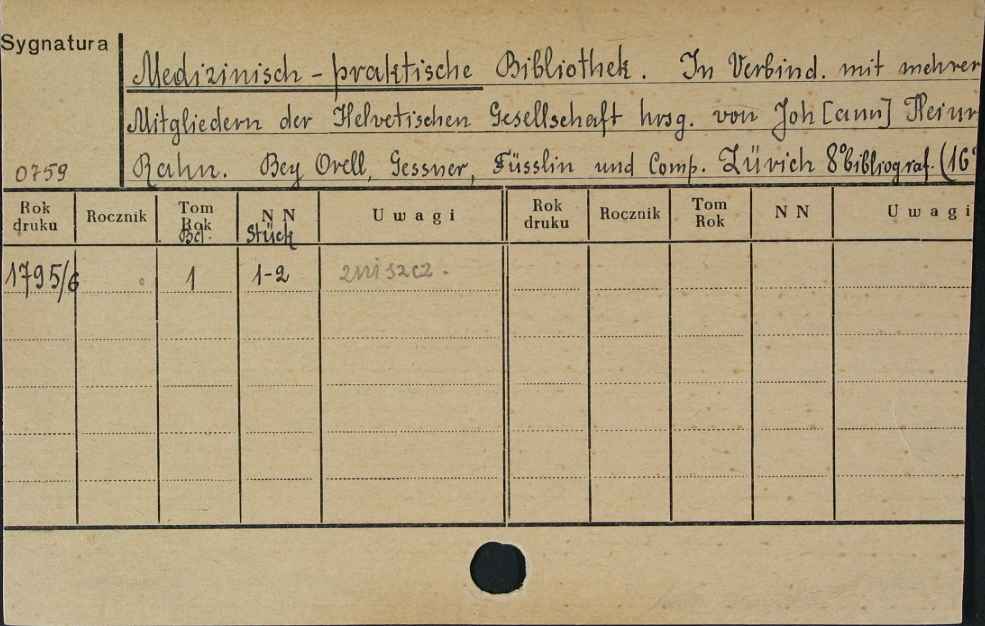 Sygnatura
Medizinisch-praktische Bibliothek. In Verbind. mit mehrer
Mitgliedern der Helvetischen Gesellschaft hrsg. von Joh[ann] Heinr
0759 Rahn. Bey Orell, Gessner, Füsslin und Comp. Zürich 8° bibliograf. (16°
Rok druku Rocznik Tom Rok Bd. NN Stück Uwagi Rok druku Rocznik Tom Rok NN Uwagi
1795/6 1 1-2 zniszcz.